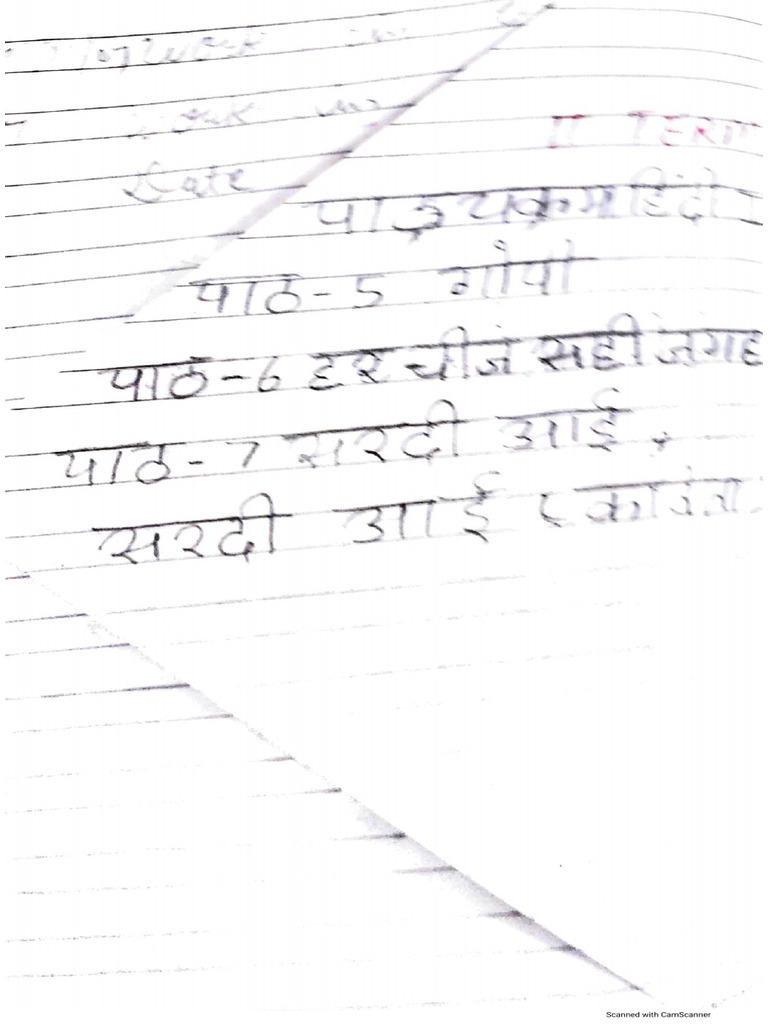 work
Date
II TERM
पाठ्यक्रम हिंदी
पाठ-5 गोपी
पाठ-6 हर चीज सही जगह
पाठ-7 सरदी आई
सरदी आई (कविता
Scanned with CamScanner